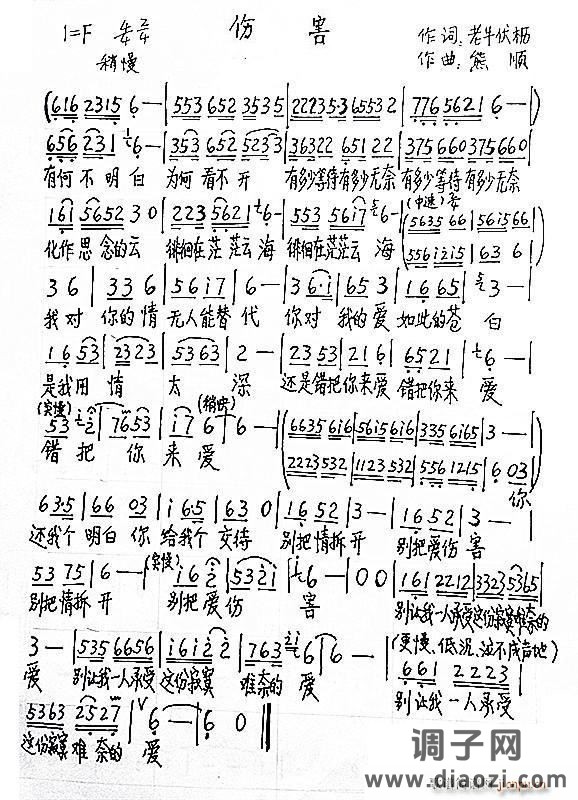 伤害
1=F
稍慢
作词:老牛伏枥
作曲:熊顺
(616 2315 6—|553 652 3535|22235·3 65532|77656216—)
656 231 6—|353 652 5233|36322 65122|375660375660|
有何不明白 为何看不开 有多少等待有多少无奈 有多少等待有多少无奈
(中速)
161 5652 30|223 5621 6—|553 5617 6—|(563566|561566|
551215|636|
化作思念的云 徘徊在茫茫云海 徘徊在茫茫云海
36|336|5617|6—|36·1|653|1665|3—|
我对你的情无人能替代 你对我的爱如此的苍白
1653|2323|5363|2—|2353|216|6521|6—|
是我用情太深 还是错把你来爱错把你来爱
(突慢)
(稍快)
53 2|7653|176|6—|(6635616|5615616|3356165|3—|
2223532|1123532|5561215|603|
错把你来爱 你
63·5|6603|165|630|1652|3—|1652|3—|
还我个明白你给我个交待 别把情拆开 别把爱伤害
(突慢)
5375|6—|162|5321|6—|00|1612212|33235365|
别把情拆开 别把爱伤害 别让我一人承受这份寂寞难奈的
3—|5356656|161622|7632 6|6—|
(更慢、低沉、泣不成声地)
661 2223|
爱 别让我一人承受这份寂寞 难奈的爱 别让我一人承受
5363 2527|6—|60‖
这份寂寞难奈的爱
调子网
www.diaozi.com